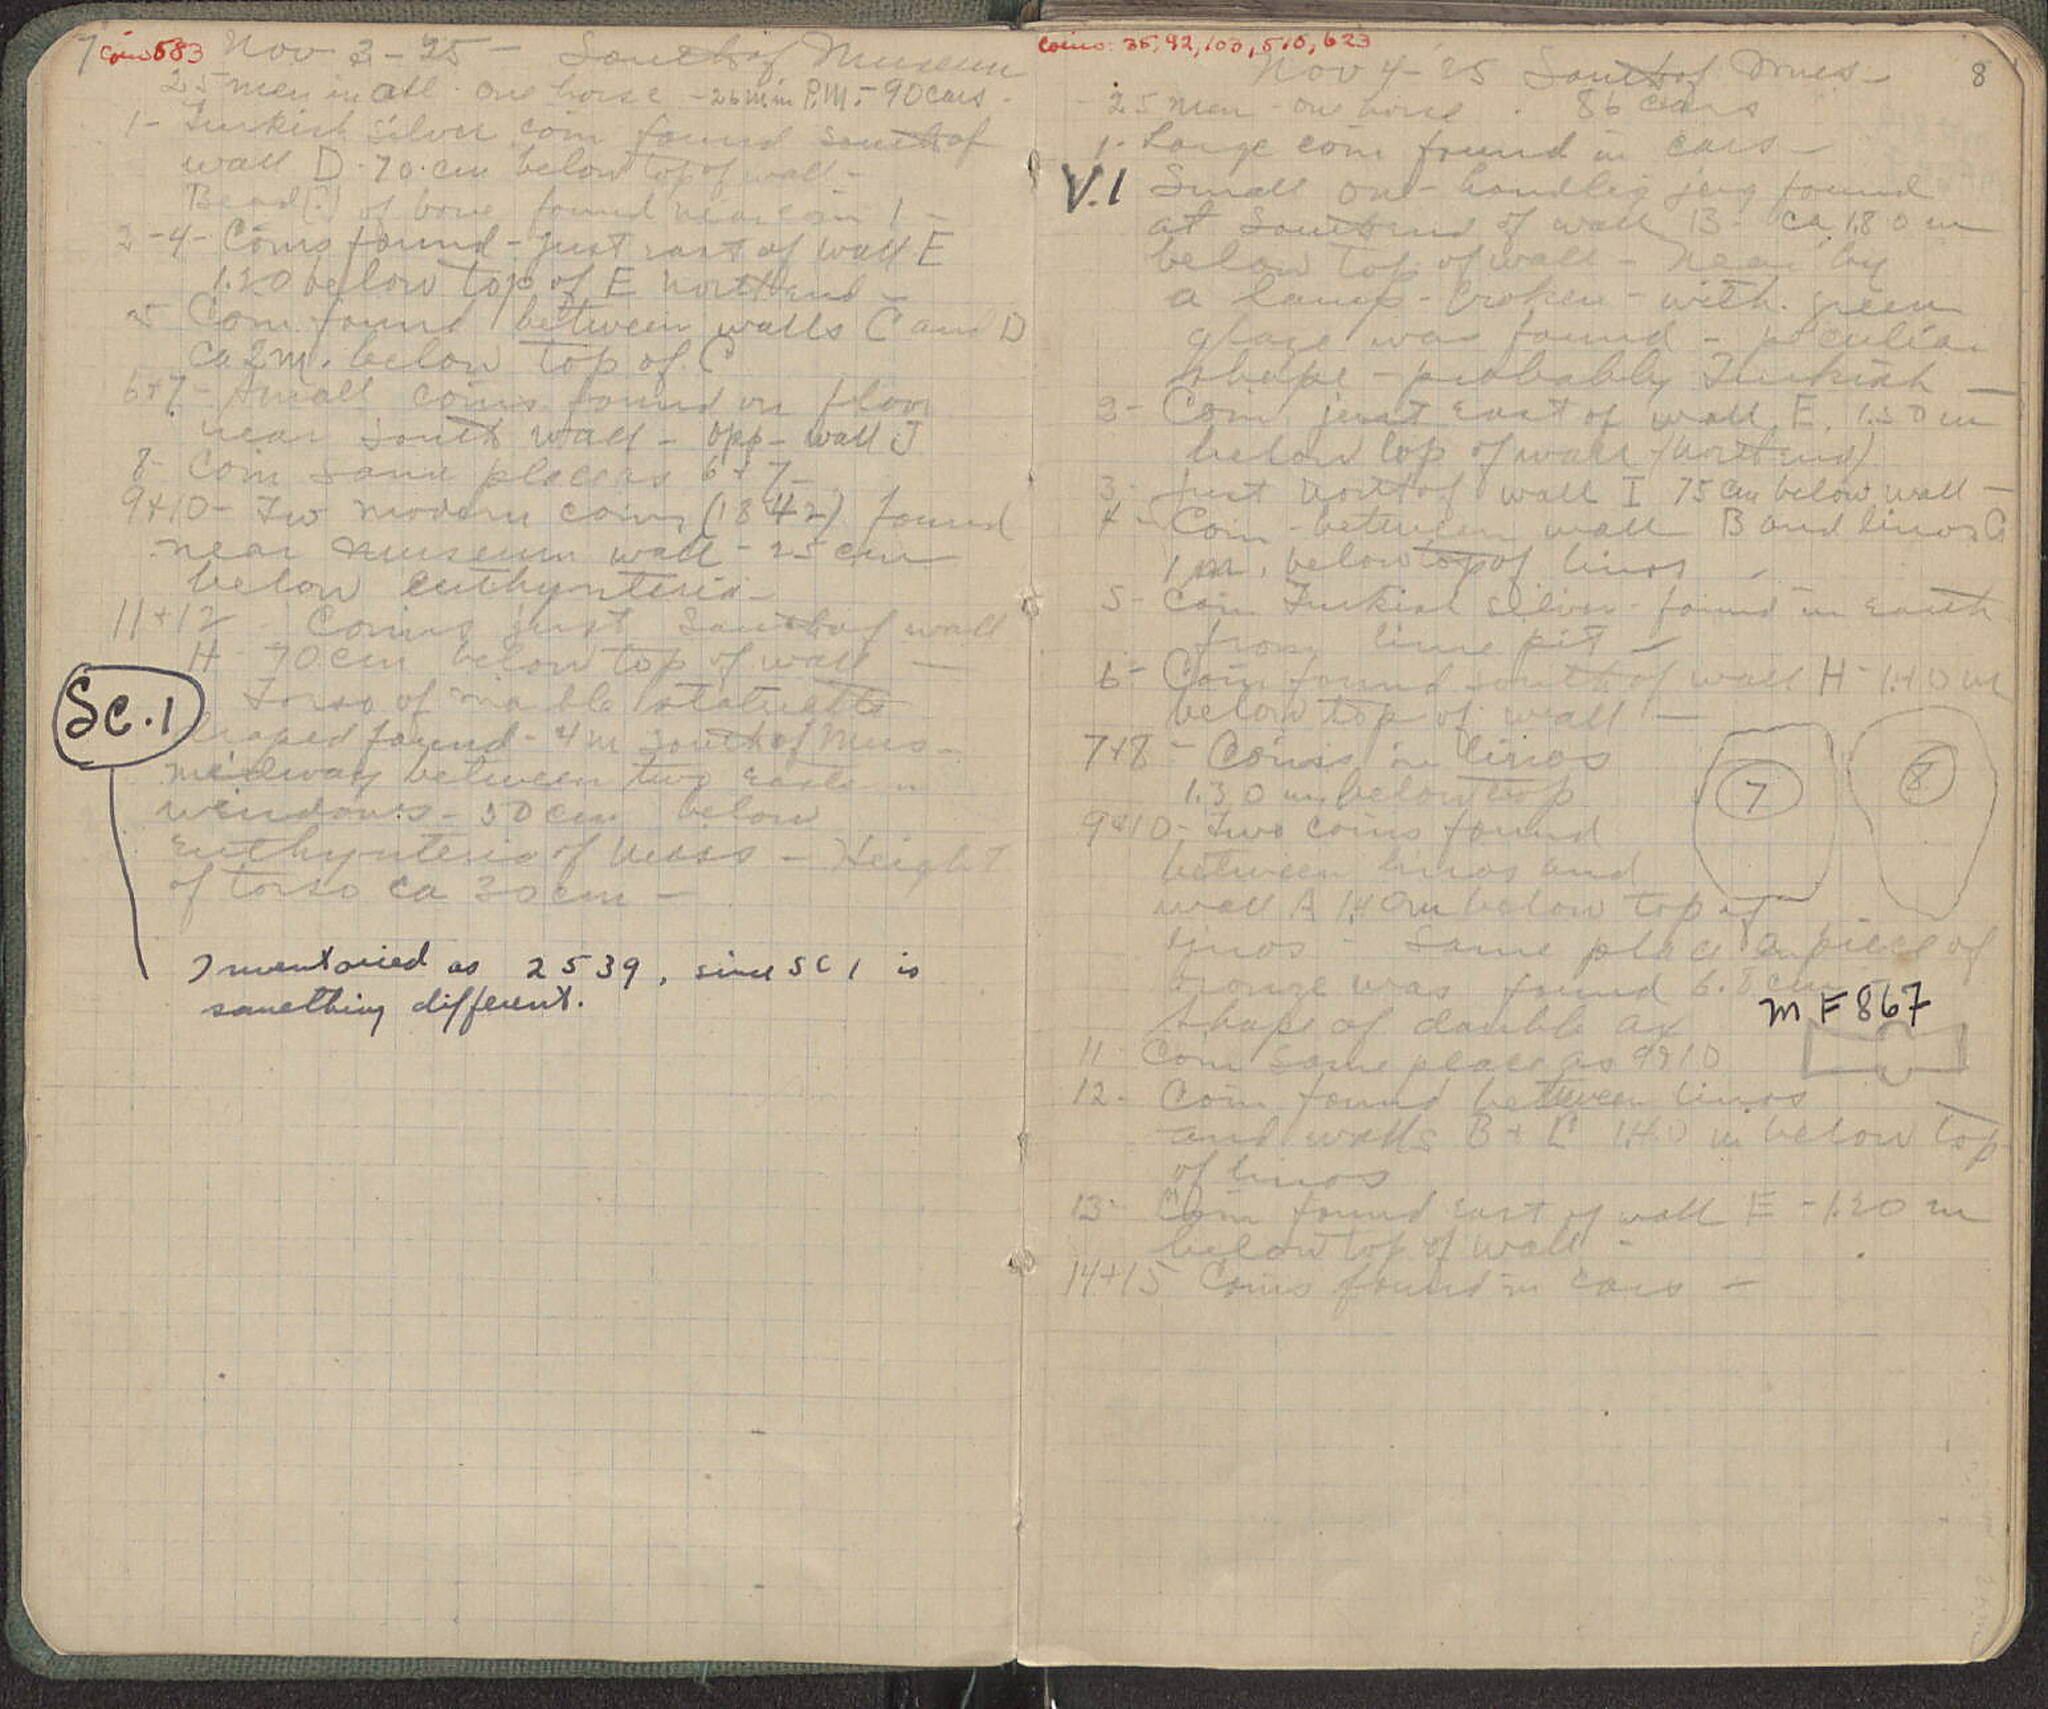 7
Coin 583
Nov 3-25 - South of Museum
25 men in all - one horse - 26 min P.M. - 90 cars -
1- Turkish silver coin found south of
wall D - 70 cm below top of wall -
Bead(?) of bone found near coin 1 -
2-4- Coins found - just east of wall E
1.20 below top of E North end -
5 Coin found between walls C and D
ca 2 m. below top of C
6+7- Small coins found on floor
near south wall - opp - wall J
8- Coin same place as 6+7-
9+10- Two modern coins (1842) found
near museum wall - 25 cm
below euthynteria -
11+12 Coins just South of wall
H - 70 cm below top of wall -
SC.1
Torso of marble statuette
draped found - 4 m south of Mus -
midway between two eastern
windows - 50 cm below
Euthynteria of Muss - Height
of torso ca 30 cm -
Inventoried as 2539, since SC 1 is
something different.
Coins: 35, 92, 103, 510, 623
8
Nov 4-25 South of Mus -
25 men - one horse - 86 cars
1. Large coin found in cars -
V.1 Small one-handled jug found
at South end of wall B - ca 1.80 m
below top of wall - Near by
a lamp - broken - with green
glaze was found - peculiar
shape - probably Turkish -
2- Coin just east of wall E. 1.50 m
below top of wall (North end)
3- Just North of wall I 75 cm below wall -
4- Coin - between wall B and linos G
1 m. below top of linos -
5- Coin Turkish silver - found in earth
from lime pit -
6- Coin found south of wall H - 1.40 m
below top of wall -
7+8 - Coins in linos
1.30 m below top
7
8
9+10- Two coins found
between linos and
wall A 1.40 m below top of
linos - Same place a piece of
bronze was found 6.8 cm
shape of double ax
MF 867
11 Coin same place as 9+10
12- Coin found between linos
and walls B + C 1.40 m below top
of linos
13- Coin found east of wall E - 1.20 m
below top of wall -
14+15 Coins found in cars -